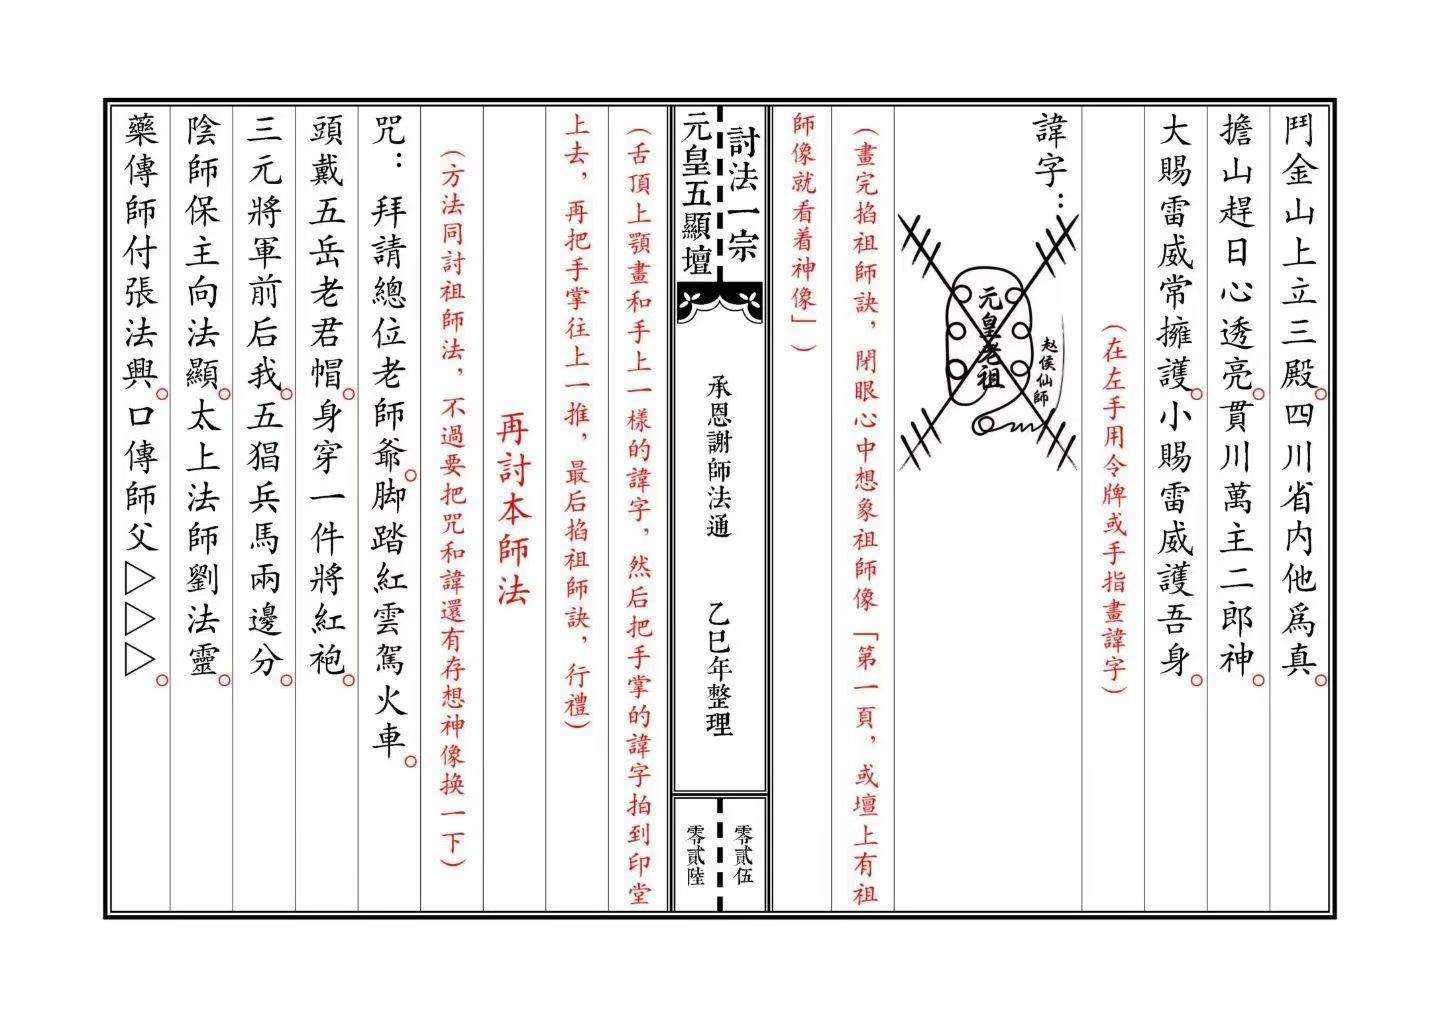 鬥金山上立三殿。四川省内他爲真。
擔山趕日心透亮。貫川萬主二郎神。
大賜雷威常擁護。小賜雷威護吾身。
（在左手用令牌或手指畫諱字）
諱字：
元皇老祖
赵侯仙師
（畫完掐祖師訣，閉眼心中想象祖師像「第一頁，或壇上有祖
師像就看着神像」）
討法一宗
元皇五顯壇
承恩謝師法通 乙巳年整理
零貳伍
零貳陸
（舌頂上顎畫和手上一樣的諱字，然后把手掌的諱字拍到印堂
上去，再把手掌往上一推，最后掐祖師訣，行禮）
再討本師法
（方法同討祖師法，不過要把咒和諱還有存想神像换一下）
咒：拜請總位老師爺。脚踏紅雲駕火車。
頭戴五岳老君帽。身穿一件將紅袍。
三元將軍前后我。五猖兵馬兩邊分。
陰師保主向法顯。太上法師劉法靈。
藥傳師付張法興。口傳師父▷▷▷。